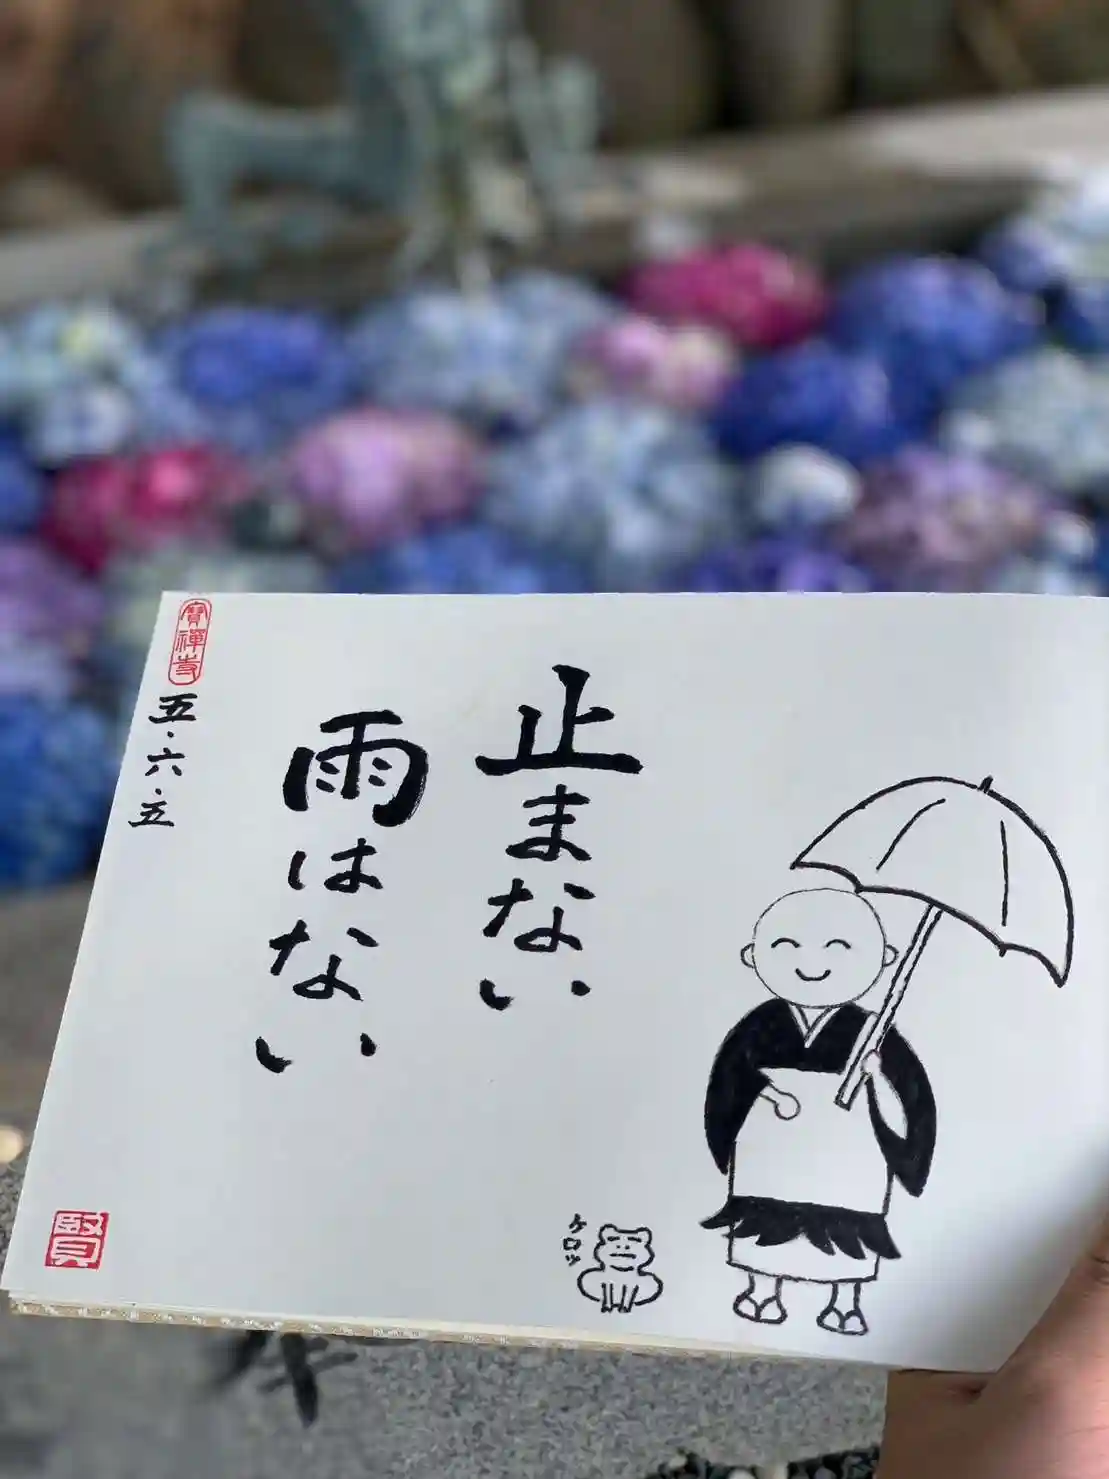 止まない
雨はない
寳禅寺
五・六・五
ケロッ
賢